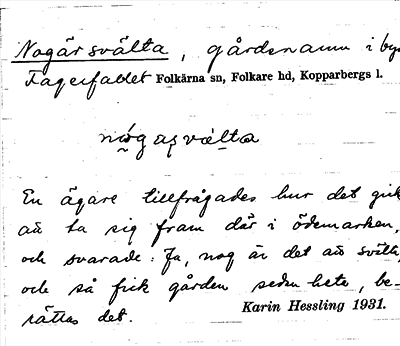 Nogärsvälta, gårdsnamn i by
Fagerfallet Folkärna sn, Folkare hd, Kopparbergs l.
En ägare tillfrågades hur det gick
att ta sig fram där i ödemarken,
och svarade: Ja, nog är det att svälta,
och så fick gården sedan heta, be-
rättas det. Karin Hessling 1931.